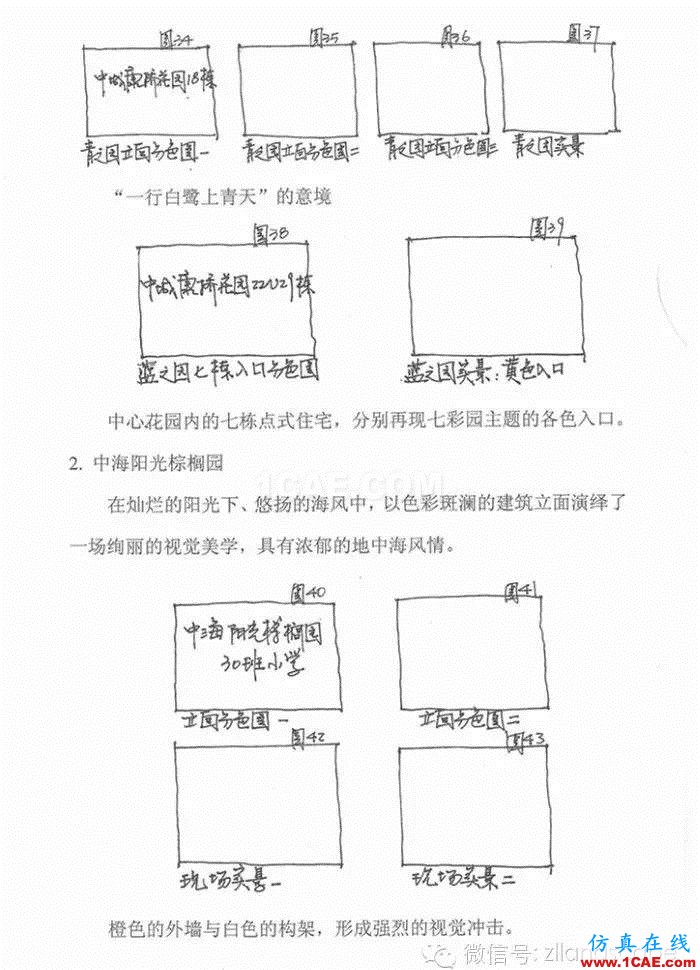 图34 图35 图36 图37
中城康桥花园18栋
青之园立面分色图一 青之园立面分色图二 青之园立面分色图三 青之园实景
“一行白鹭上青天”的意境
图38 图39
中城康桥花园22∪29栋
蓝之园七栋入口分色图 蓝之园实景:黄色入口
中心花园内的七栋点式住宅，分别再现七彩园主题的各色入口。
2. 中海阳光棕榈园
1CAE.COM
在灿烂的阳光下、悠扬的海风中，以色彩斑澜的建筑立面演绎了
一场绚丽的视觉美学，具有浓郁的地中海风情。
图40 图41
中海阳光棕榈园
30班小学
立面分色图一 立面分色图二
图42 图43
现场实景一 现场实景二
橙色的外墙与白色的构架，形成强烈的视觉冲击。
微信号:
仿真在线
www.1CAE.com